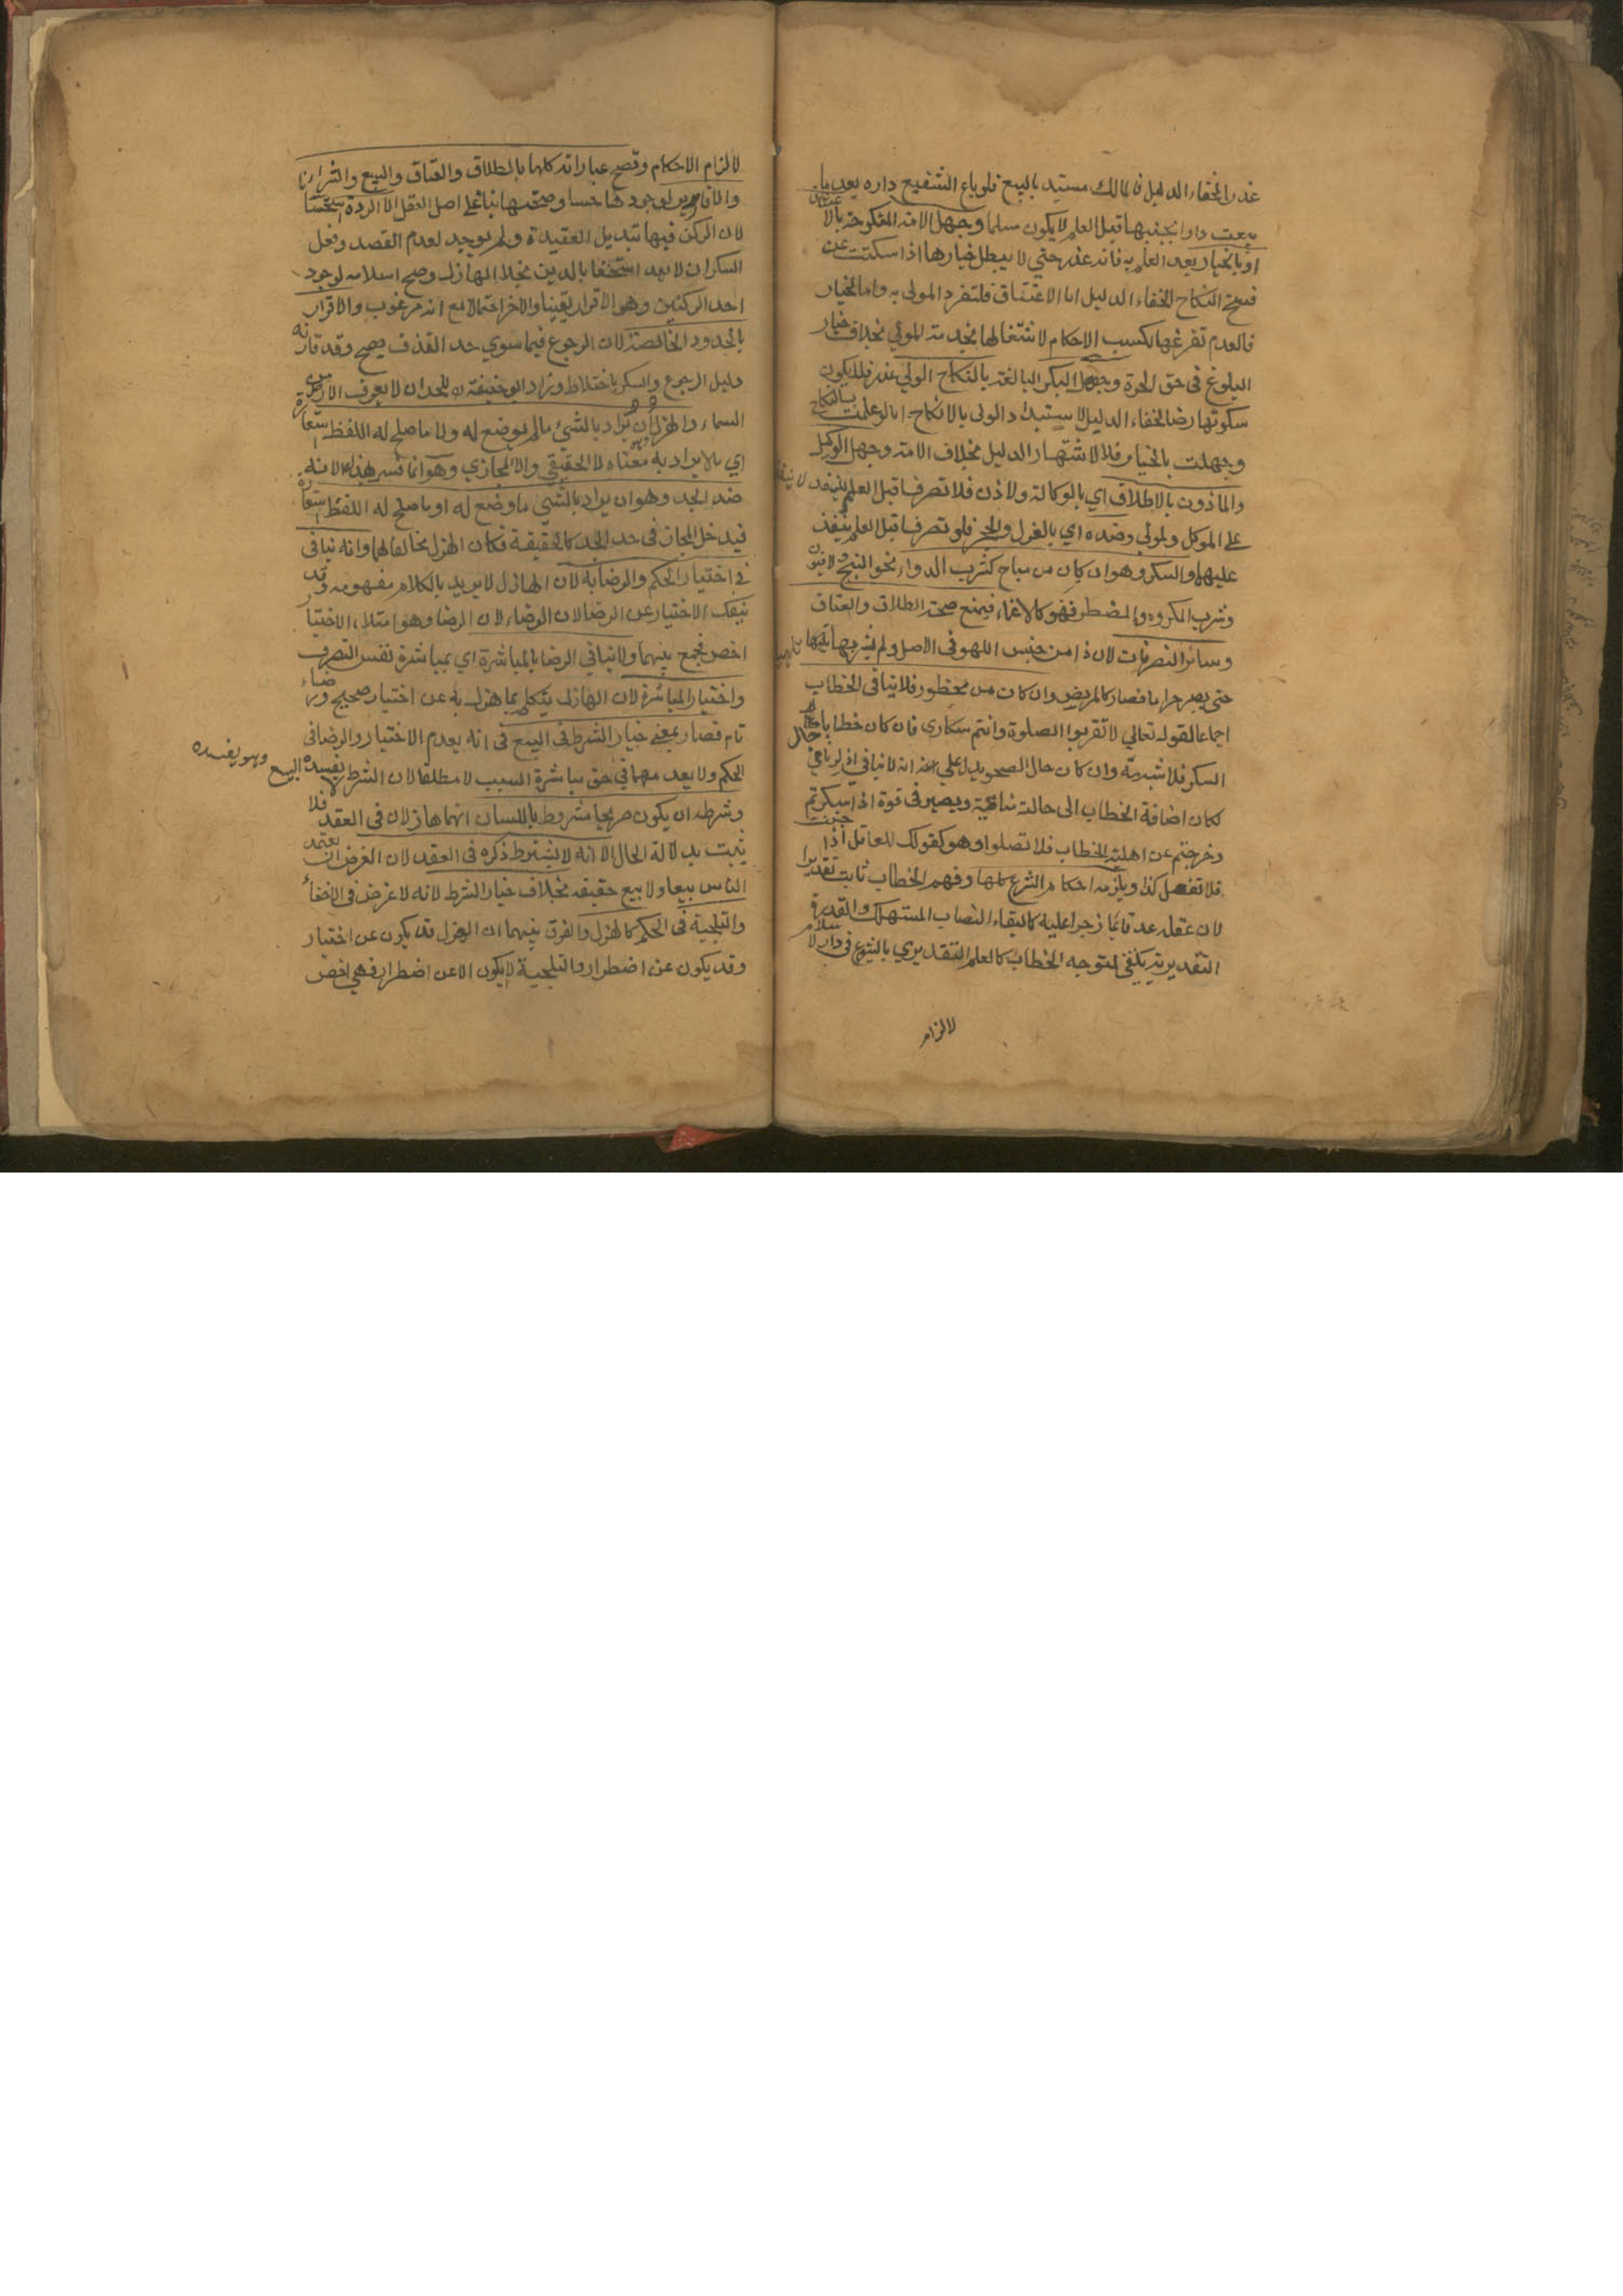 عذر لخفاء الدليل فالمالك مستبد بالبيع فلو باع الشفيع داره بعد ما
بيعت دار بجنبها قبل العلم لا يكون مسلما وجهل الامة المنكوحة بالاعتاق
او بالخيار بعد العلم به فانه عذر حتي لا يبطل خيارها اذا سكتت عن
فسخ النكاح لخفاء الدليل اما الاعتاق فلتفرد المولى به واما الخيار
فلعدم تفرغها لكسب الاحكام لاشتغالها بخدمة المولي بخلاف خيار
البلوغ فى حق الحرة وجهل البكر البالغة بالنكاح الولي عذر فلا يكون
سكوتها رضا لخفاء الدليل لاستبداد الولى بالانكاح اما لو علمت بالنكاح
وجهلت بالخيار فلا لاشتهار الدليل بخلاف الامة وجهل الوكيل
والماذون بالاطلاق اي بالوكالة والاذن فلا تصرفا قبل العلم لا ينفذ
على الموكل والمولي وضده اي بالعزل والحجر فلو تصرفا قبل العلم ينفذ
عليهما والسكر وهو ان كان من مباح كشرب الدواء نحو البنج والافيون
وشرب المكره والمضطر فهو كالاغماء فيمنع صحة الطلاق والعتاق
وسائر التصرفات لان ذا من جنس اللهو فى الاصل ولم
حتى يصير حراما فصار كالمريض وان كان من محظور فلا ينافى الخطاب
اجماعا لقوله تعالي لا تقربوا الصلوة وانتم سكارى فان كان خطابا حال
السكر فلا شبهة وان كان حال الصحو يدل على انه لا ينافي اذ لو نافي
لكان اضافة الخطاب الى حالة منافية ويصير فى قوة اذا سكرتم
وخرجتم عن اهلية الخطاب فلا تصلوا وهو كقولك للعاقل اذا جننت
فلا تفعل كذا ويلزمه احكام الشرع كلها وفهم الخطاب ثابت تقديرا
لان عقله عد قائما زجرا عليه كابقاء النصاب المستهلك والقدرة
التقديرية يكفى لتوجه الخطاب كالعلم التقديري بالشرع فى دار الاسلام
لالزام
لالزام الاحكام وتصح عباراته كلها بالطلاق والعتاق والبيع والشراء
والاقارير لوجودها حسا وصحتها بناء على اصل العقل الا الردة استحسانا
لان الركن فيها تبديل العقيدة ولم يوجد لعدم القصد وفعل
السكران لا يعد استخفافا بالدين بخلاف الهازل وصح اسلامه لوجود
احد الركنين وهو الاقرار يقينا والاخر احتمالا مع انه مرغوب والاقرار
بالحدود الخالصة لان الرجوع فيما سوي حد القذف يصح وقد قارنه
دليل الرجوع والسكر باختلاط وزاد ابو حنيفة للحد ان لا يعرف الارض من
السماء والهزل ان يراد بالشئ ما لم يوضع له ولا ما صلح له اللفظ استعارة
اي بلا يراد به معناه لا الحقيقي ولا المجازي وهو انما فسر بهذا لانه
ضد الجد وهو ان يراد بالشئ ما وضع له او ما صلح له اللفظ استعارة
فيدخل المجاز فى حد الجد كالحقيقة فكان الهزل مخالفا لهما وانه ينافى
اختيار الحكم والرضا به لان الهازل لا يريد بالكلام مفهومه وقد
ينفك الاختيار عن الرضا لان الرضاء لان الرضا وهو امتلاء الاختيار
اخص فجمع بينهما ولا ينافي الرضا بالمباشرة اي بمباشرة نفس التصرف
واختيار المباشرة لان الهازل يتكلم بما هزل به عن اختيار صحيح ورضاء
تام فصار بمعنى خيار الشرط فى البيع فى انه يعدم الاختيار والرضا فى
الحكم ولا يعدمهما في حق مباشرة السبب لا مطلقا لان الشرط لا يفسده البيع وهو يفسده
وشرطه ان يكون صريحا مشروطا باللسان انهما هازلان فى العقد فلا
يثبت بدلالة الحال الا انه لا يشترط ذكره فى العقد لان الغرض ان يعتمد
الناس بيعا ولا بيع حقيقة بخلاف خيار الشرط لانه لا غرض فى الاخفاء
والتلجية فى الحكم كالهزل والفرق بينهما ان الهزل قد يكون عن اختيار
وقد يكون عن اضطرار والتلجية لا يكون الا عن اضطرار فهي اخص